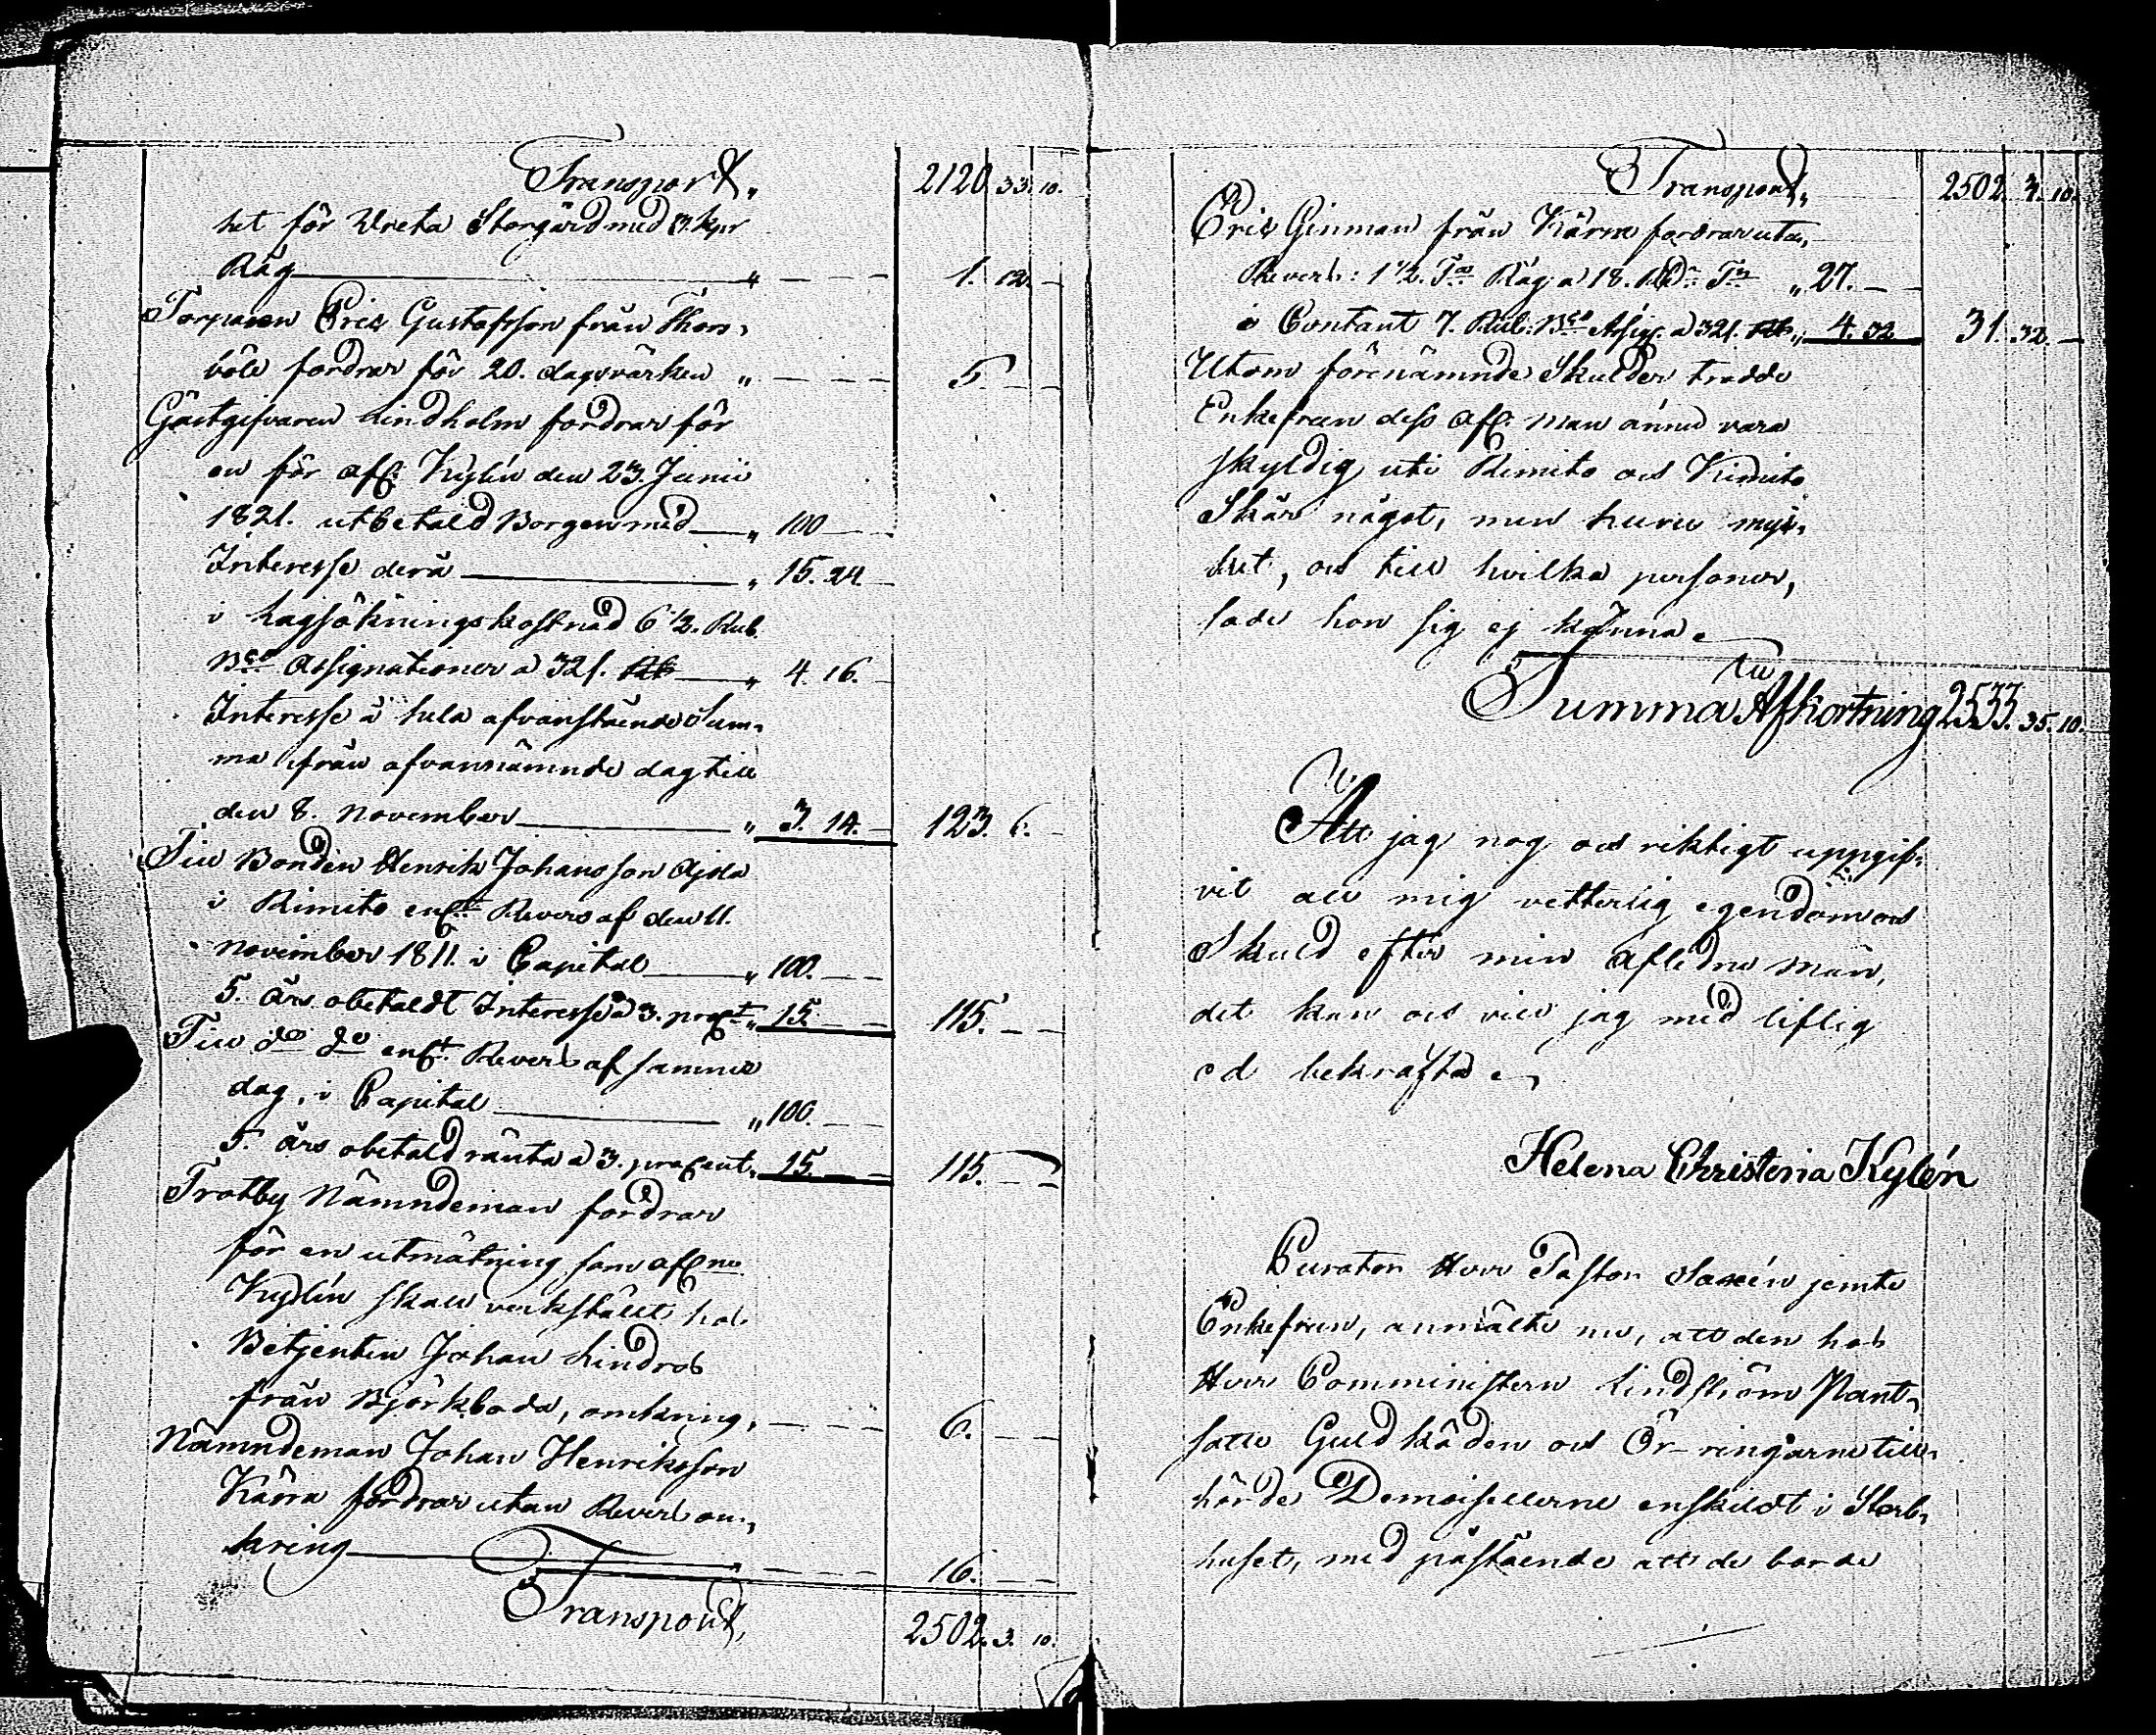 Transport„ 2120. 33. 10.
het för Wreta Storgård med 3. kpr
Råg „ — — — 1. 12. —
Torparen Eric Gustafsson från Thors„
böle fordrar för 20. dagsvärken „ — — — 5. — —
Gästgifvaren Lindholm fordrar för
en för afl: Kylén den 23. Junii
1821. utbetald Borgen med „ 100 —
Interesse derå „ 15. 24.
i Lagsökningskostnad 6 1/2. Rub.
Bco Assignationer a 32 s. „ 4. 16.
Interesse å hela ofvanstående Sum„
ma ifrån ofvannämnde dag till
den 8. November „ 3. 14. — 123. 6. —
Till Bonden Henrik Johansson Ajsla
i Rimito enl:t Revers af den 11.
November 1811. i Capital „ 100. — —
5. års obetaldt Interesse a 3. procent „ 15. — — 115. — —
Till do do enl:t Revers af samma
dag, i Capital „ 100. — —
5. års obetald ränta a 3. procent „ 15. — — 115. — —
Trotby Nämndeman fordrar
för en utmätning som afl:ne
Kylén skall verkställt hos
Betjenten Johan Lindros
från Björkboda, omkring, — — — 6. — —
Nämndeman Johan Henriksson
Kärra fordrar utan Revers om„
kring „ — — — 16. — —
Transport, 2502. 3. 10.
Transport„ 2502. 3. 10.
Eric Ginman från Kärra fordrar utan
Revers: 1 1/2. T:a Råg a 18. Rd:r T:n „ 27. — —
i Contant 7. Rub: Bco Assig. a 32 s. „ 4. 32 31. 32. —
Utom förenämnde Skulder trodde
Enkefrun dess afl: Man ännu vara
skyldig uti Rimito och Kimito
Skär något, men huru myc„
ket, och till hvilka personer,
sade hon sig ej känna.
Summa Afkortning 2533. 35. 10.
Att jag nog och riktigt uppgif„
vit all mig vetterlig egendom och
Skuld efter min aflidne Man,
det kan och vill jag med liflig
ed bekräfta.
Helena Christina Kylén
Curator Herr Pastor Saxén jemte
Enkefrun, anmälte nu, att den hos
Herr Comministern Lindström Pant„
satte Guld käden och Ör-ringarne till„
hörde Demoisellerne enskildt i Sterb„
huset, med påstående att de borde